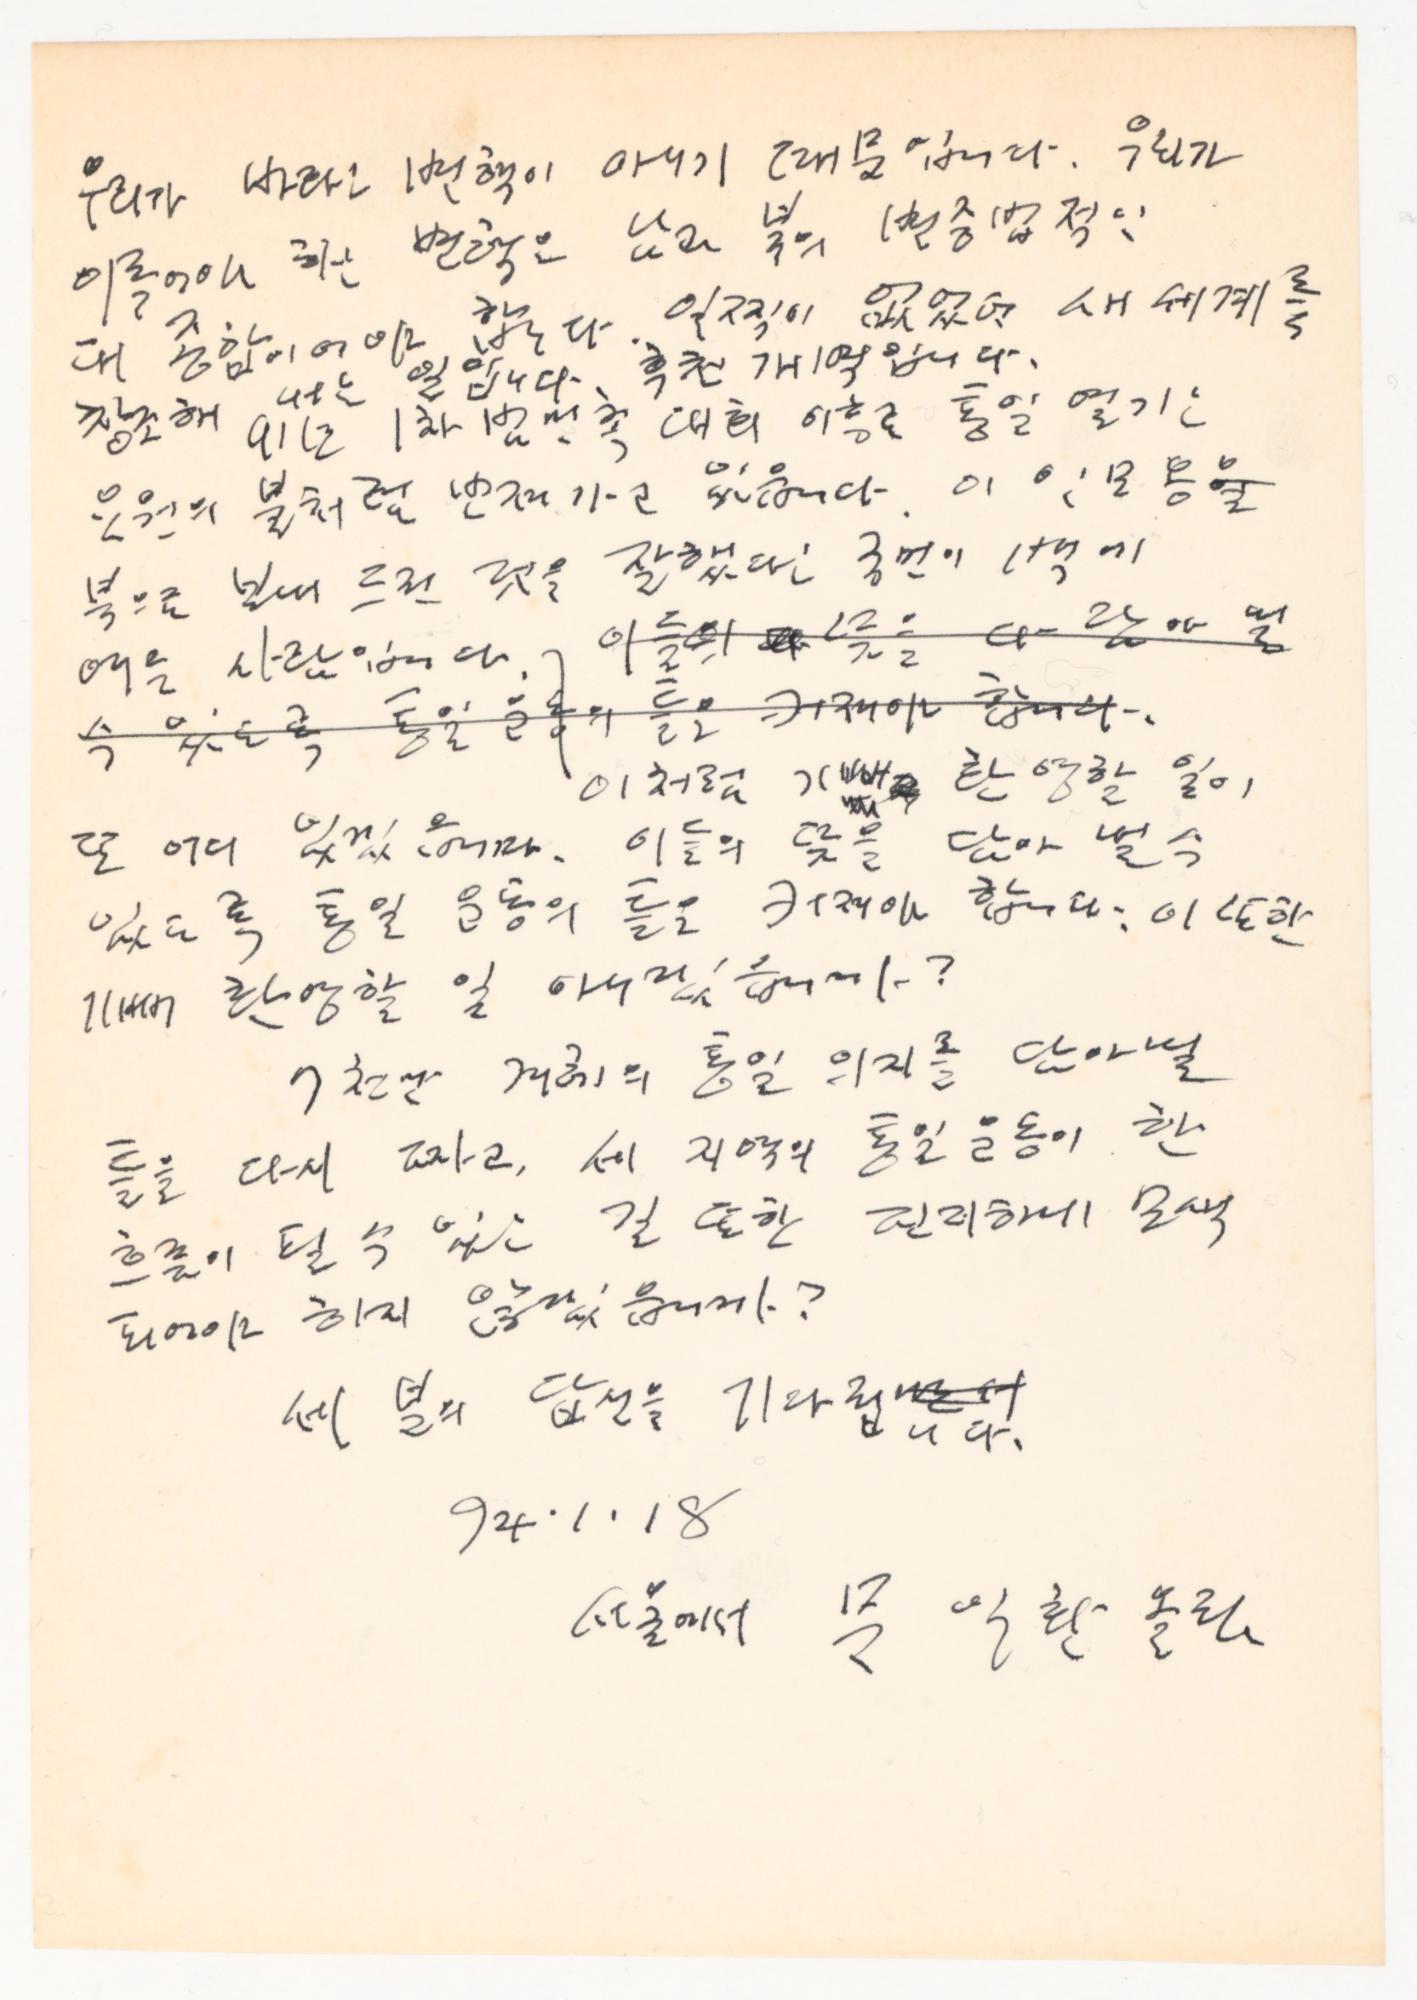 우리가 바라는 변혁이 아니기 때문입니다. 우리가
이룰어야 하는 변혁은 남과 북의 변증법적인
대 종합이어야 합니다. 일찍이 없었던 새 세계를
창조해 내는 일입니다. 후천 개벽입니다.
91년 1차 범민족 대회 이후로 통일 열기는
요원의 불처럼 번져가고 있읍니다. 이인모 옹을
북으로 보내 드린 것을 잘했다는 국민이 백에
여든 사람입니다. 이들의 뜻을 다 담아 낼
수 있도록 통일 운동의 틀은 커져야 합니다.
이처럼 기뻐 환영할 일이
또 어디 있겠읍니까. 이들의 뜻을 담아 낼 수
있도록 통일 운동의 틀은 커져야 합니다. 이 또한
기뻐 환영할 일 아니겠읍니까?
7천만 겨레의 통일 의지를 담아낼
틀을 다시 짜고, 세 지역의 통일운동이 한
흐름이 될 수 있는 길 또한 진지하게 모색
되어야 하지 않겠읍니까?
세 분의 답신을 기다립니다.
94.1.18
서울에서 문익환 올림